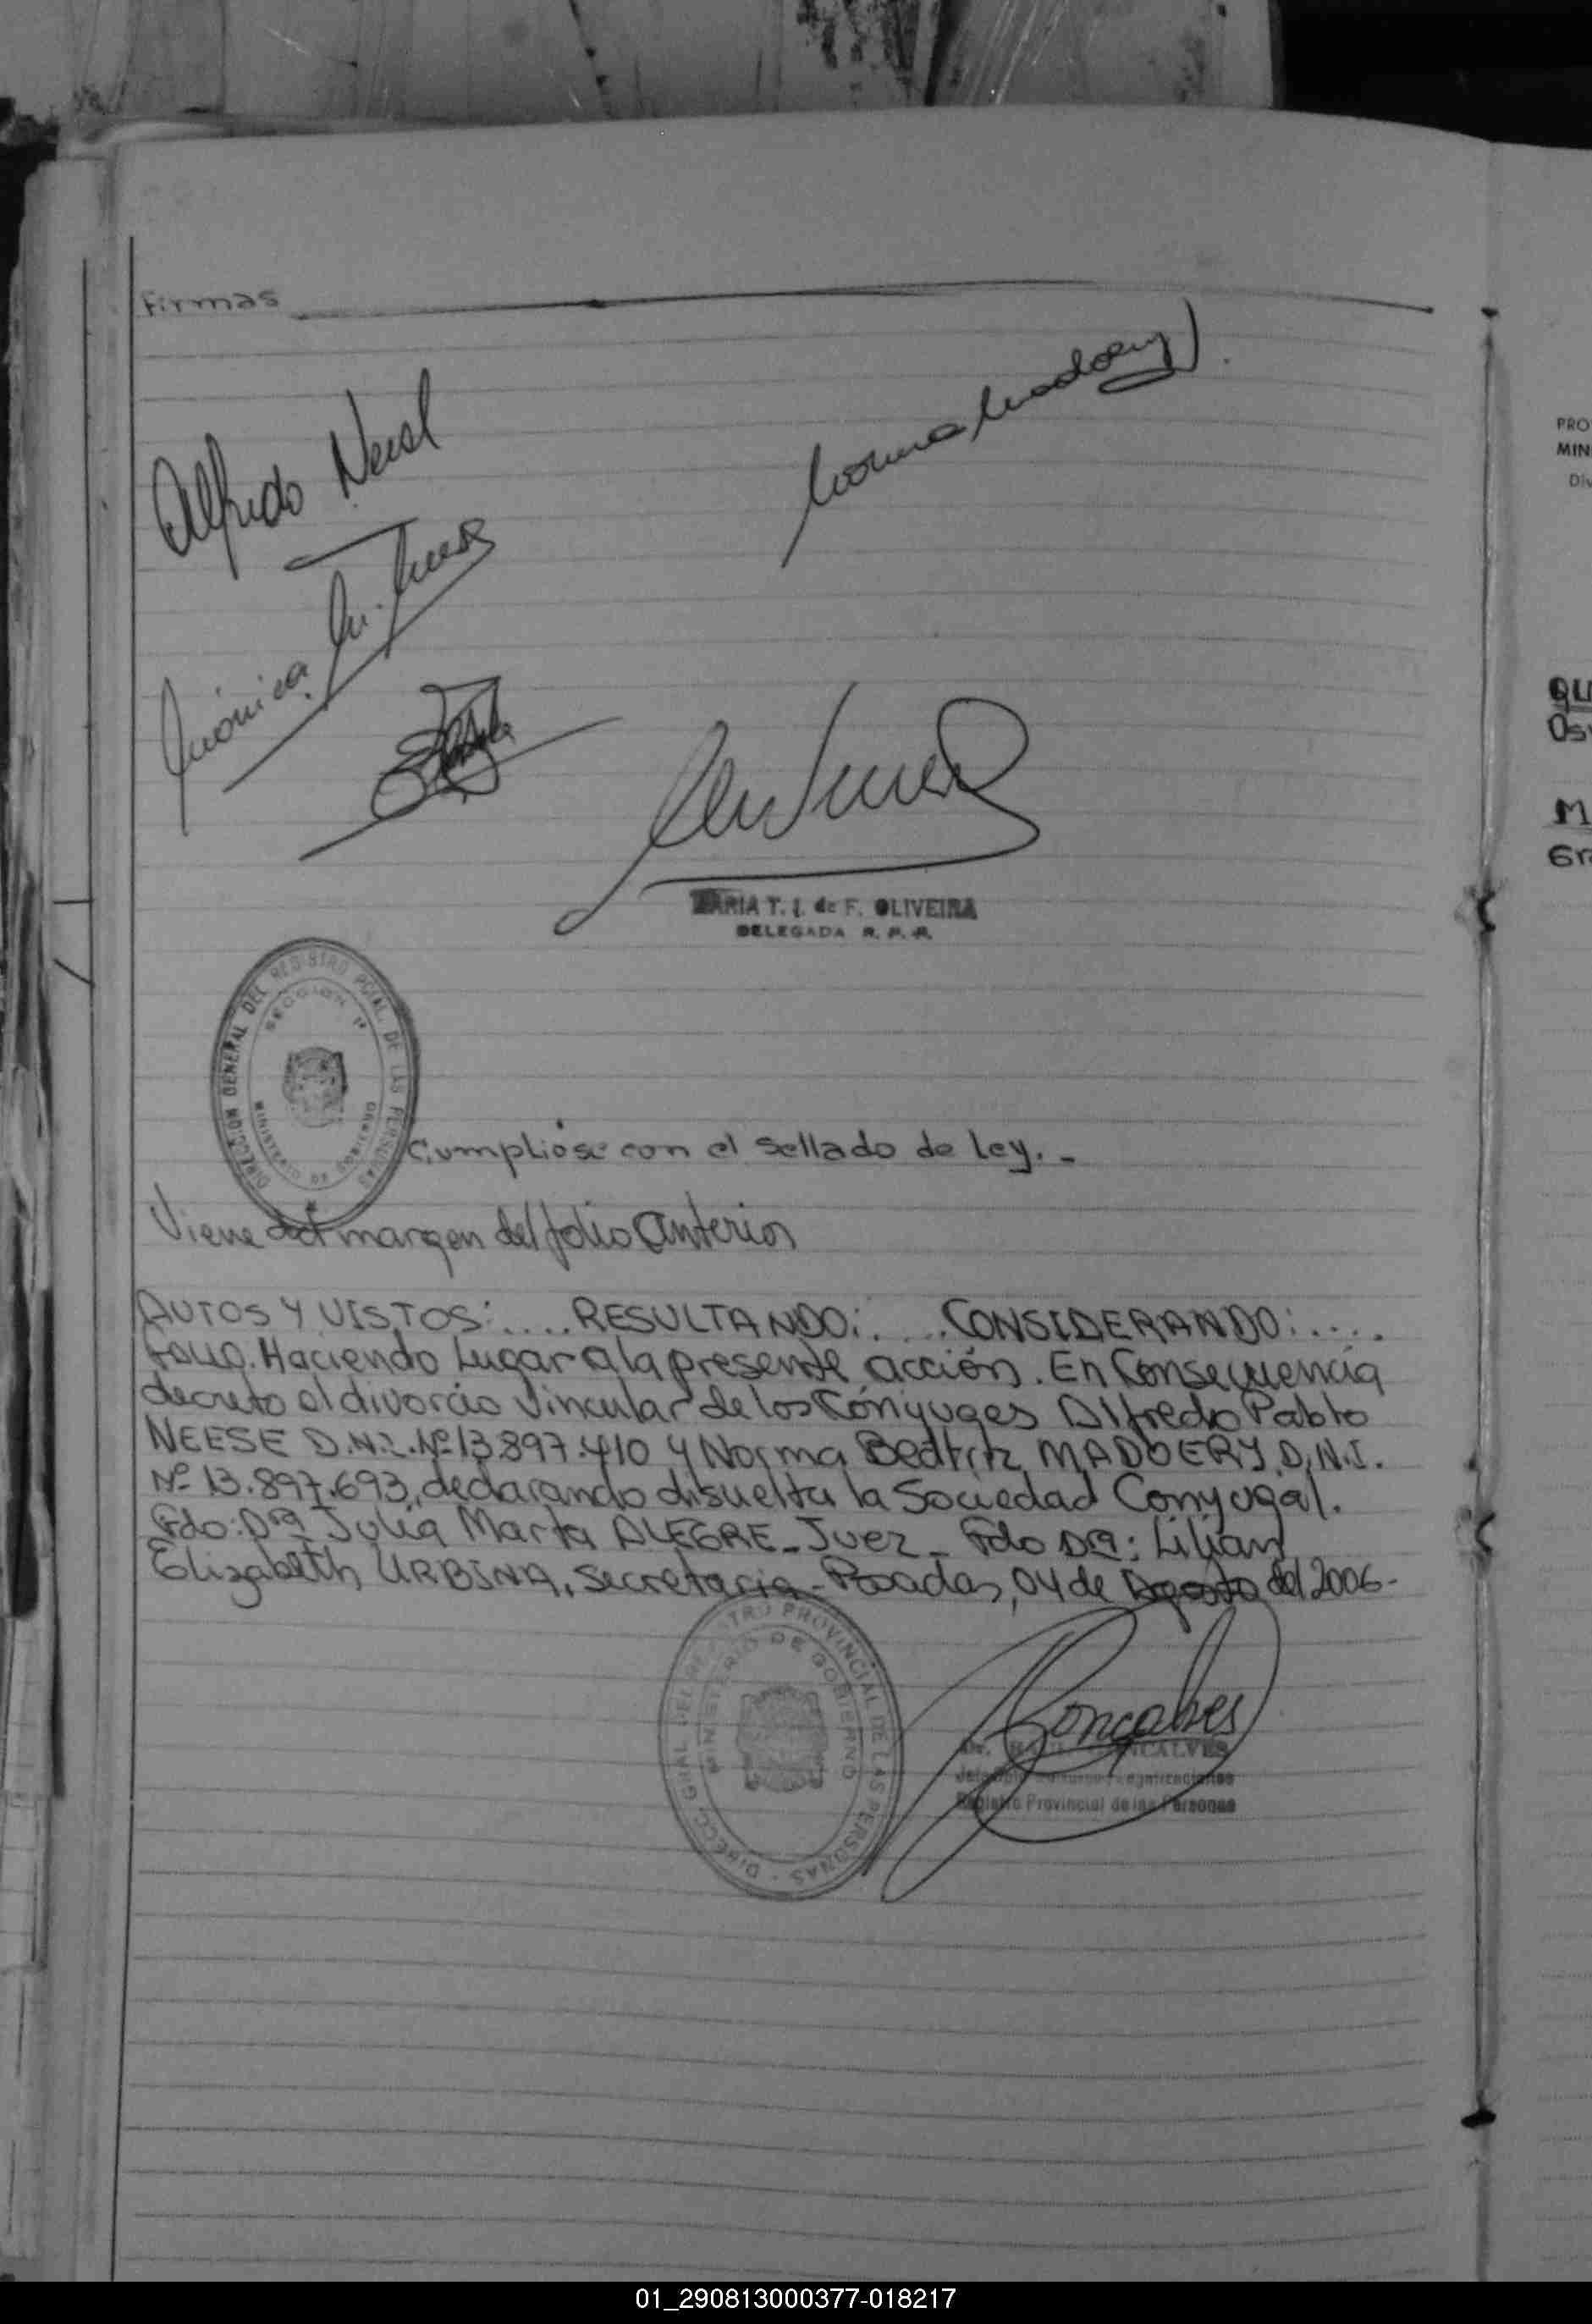 Firmas
Alfredo Neese
Norma Madoery
Mónica M.
MARIA T. I. de F. OLIVEIRA
DELEGADA R. P. P.
DIRECCION GENERAL DEL REGISTRO PCIAL. DE LAS PERSONAS
SECCION 1ª
MINISTERIO DE GOBIERNO
Cumplióse con el sellado de Ley. -
Viene del margen del folio anterior
AUTOS Y VISTOS: .... RESULTANDO: .... CONSIDERANDO: ....
FALLO. Haciendo Lugar a la presente acción. En Consecuencia
decreto el divorcio Vincular de los Cónyuges Alfredo Pablo
NEESE D.N.I. Nº 13.897.410 y Norma Beatriz MADOERY D.N.I.
Nº 13.897.693, declarando disuelta la Sociedad Conyugal.
Fdo: Dra Julia Marta ALEGRE - Juez - Fdo Dra: Lilian
Elizabeth URBINA, Secretaria - Posadas, 04 de Agosto del 2006 -
DIRECC. GRAL. DEL REGISTRO PROVINCIAL DE LAS PERSONAS -
MINISTERIO DE GOBIERNO
Goncalves
Dr. GONCALVES
Registro Provincial de las Personas
PRO
MIN
Div
QU
Os
M
Gr
01_290813000377-018217